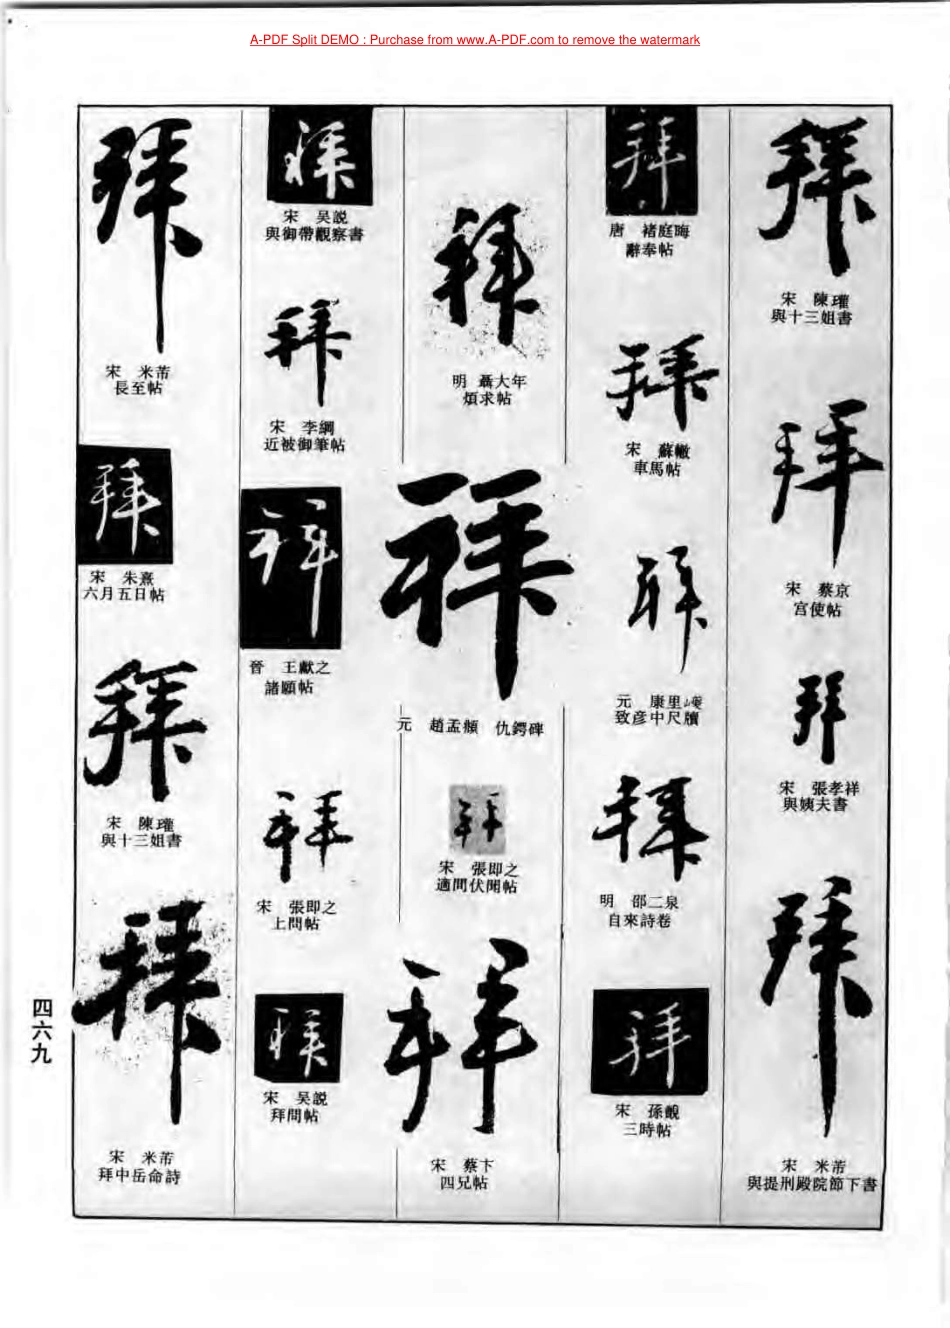 A-PDF Split DEMO : Purchase from www.A-PDF.com to remove the watermark
拜
宋 陳瓘
與十三姐書
拜
宋 蔡京
宮使帖
拜
宋 張孝祥
與姨夫書
拜
宋 米芾
與提刑殿院節下書
拜
唐 褚庭晦
辭奉帖
拜
宋 蘇轍
車馬帖
拜
元 康里巎
致彦中尺牘
拜
明 邵二泉
自來詩卷
拜
宋 孫覿
三時帖
拜
明 聶大年
煩求帖
拜
元 趙孟頫 仇鍔碑
拜
宋 張即之
適間伏聞帖
拜
宋 蔡卞
四兄帖
拜
宋 吴説
與御帶觀察書
拜
宋 李綱
近被御筆帖
拜
晉 王獻之
諸願帖
拜
宋 張即之
上問帖
拜
宋 吴説
拜問帖
拜
宋 米芾
長至帖
拜
宋 朱熹
六月五日帖
拜
宋 陳瓘
與十三姐書
拜
宋 米芾
拜中岳命詩
四六九